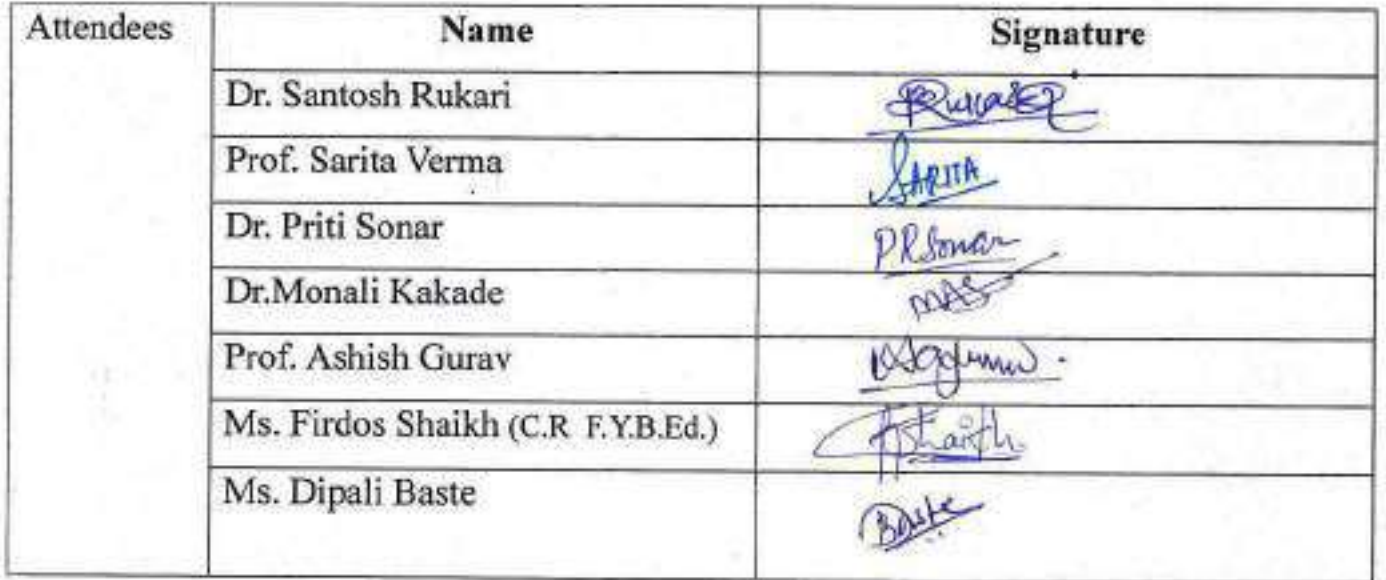 Attendees Name Signature
Dr. Santosh Rukari
Prof. Sarita Verma SARITA
Dr. Priti Sonar PRSonar
Dr.Monali Kakade
Prof. Ashish Gurav
Ms. Firdos Shaikh (C.R F.Y.B.Ed.) Shaikh
Ms. Dipali Baste Baste